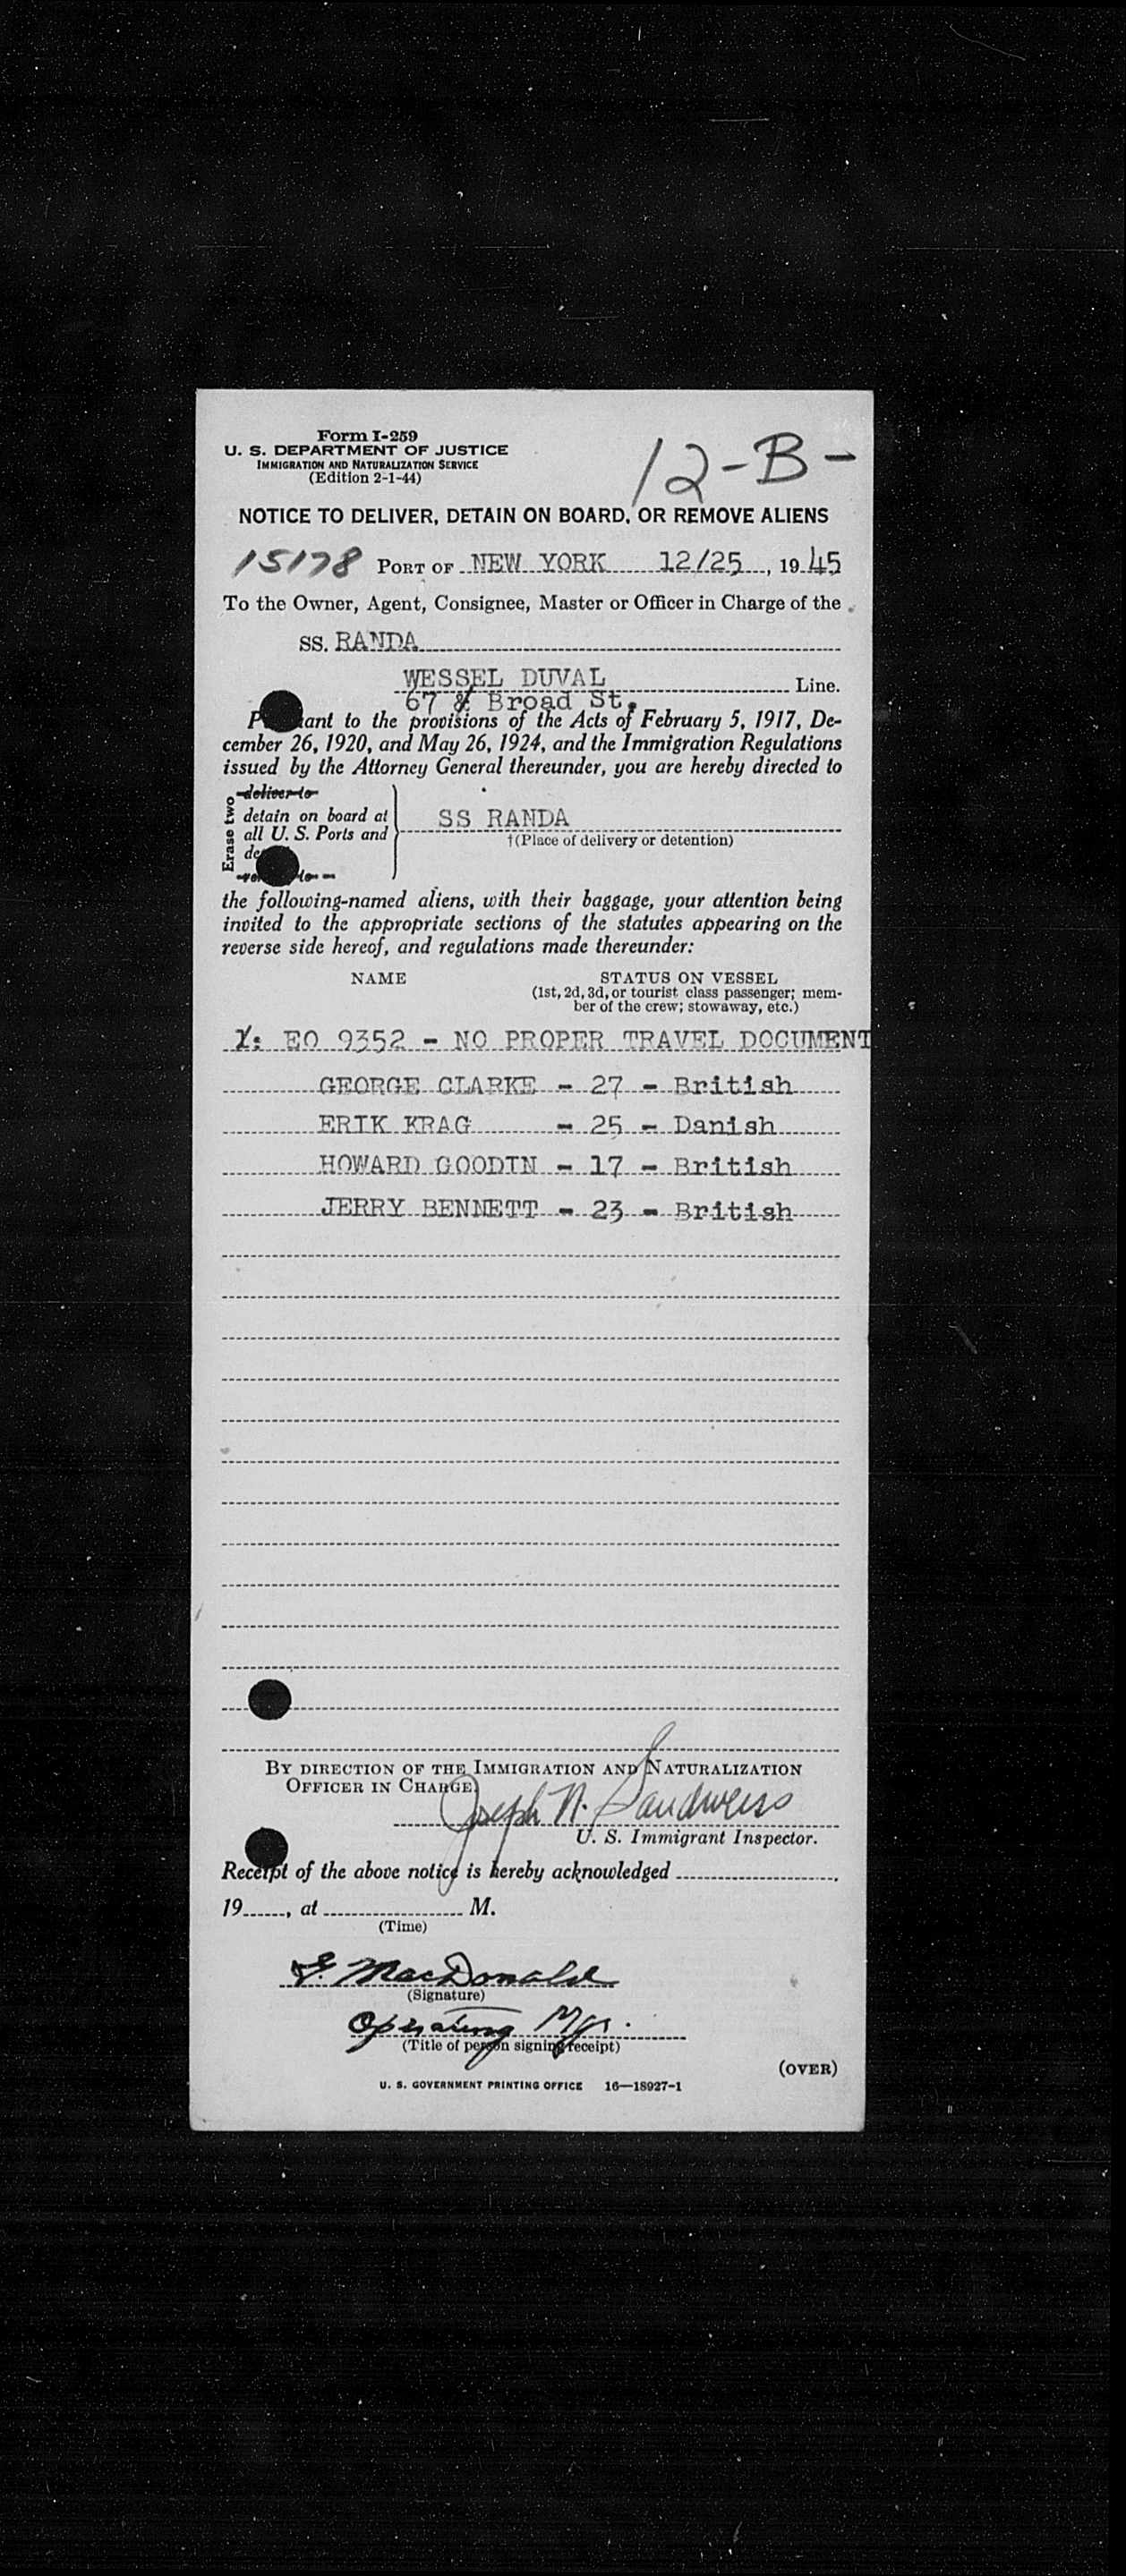 Form I-259
U. S. DEPARTMENT OF JUSTICE
IMMIGRATION AND NATURALIZATION SERVICE
(Edition 2-1-44)
12-B-
NOTICE TO DELIVER, DETAIN ON BOARD, OR REMOVE ALIENS
15178 PORT OF NEW YORK 12/25, 1945
To the Owner, Agent, Consignee, Master or Officer in Charge of the
SS. RANDA
WESSEL DUVAL Line.
67 & Broad St.
ant to the provisions of the Acts of February 5, 1917, De-
cember 26, 1920, and May 26, 1924, and the Immigration Regulations
issued by the Attorney General thereunder, you are hereby directed to
Erase two
deliver to
detain on board at
all U. S. Ports and
SS RANDA
†(Place of delivery or detention)
the following-named aliens, with their baggage, your attention being
invited to the appropriate sections of the statutes appearing on the
reverse side hereof, and regulations made thereunder:
NAME STATUS ON VESSEL
(1st, 2d, 3d, or tourist class passenger; mem-
ber of the crew; stowaway, etc.)
EO 9352 - NO PROPER TRAVEL DOCUMENT
GEORGE CLARKE - 27 - British
ERIK KRAG - 25 - Danish
HOWARD GOODIN - 17 - British
JERRY BENNETT - 23 - British
BY DIRECTION OF THE IMMIGRATION AND NATURALIZATION
OFFICER IN CHARGE
Joseph N. Sandweiss
U. S. Immigrant Inspector.
Receipt of the above notice is hereby acknowledged
19, at M.
(Time)
MacDonald
(Signature)
Operating Mgr.
(Title of person signing receipt)
(OVER)
U. S. GOVERNMENT PRINTING OFFICE 16—18927-1